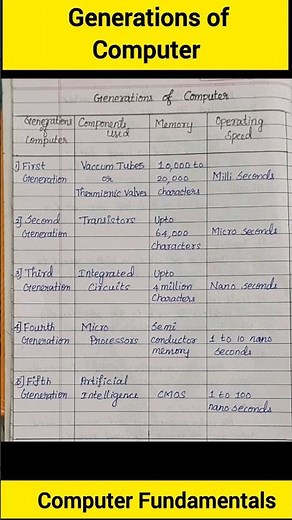 Generations of
Computer
Generations of Computer
Generations of Computer
Components used
Memory
Operating Speed
1) First Generation
Vaccum Tubes or Thermionic Valves
10,000 to 20,000 characters
Milli Seconds
2) Second Generation
Transistors
Upto 64,000 characters
Micro Seconds
3) Third Generation
Integrated Circuits
Upto 4 million Characters
Nano seconds
4) Fourth Generation
Micro Processors
Semi conductor memory
1 to 10 nano seconds
5) Fifth Generation
Artificial Intelligence
CMOS
1 to 100 nano seconds
Computer Fundamentals